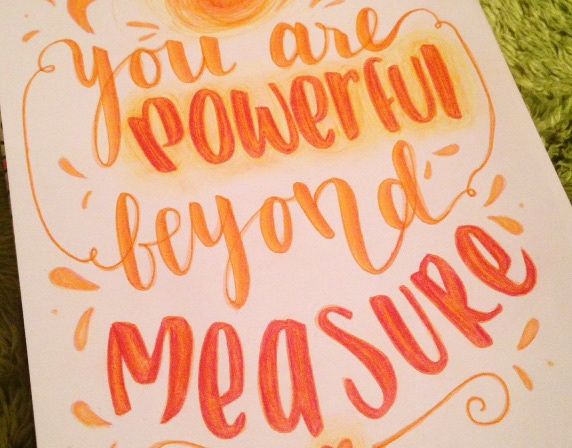 you are
powerful
beyond
measure